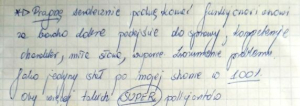 *1) Pragnę serdecznie podziękować funkcjonariuszowi
za bardzo dobre podejście do sprawy, kompetencje
charakter, miłe słowa, zrozumienie problemu
jako jedyny stał po mojej stronie w 1001
Oby więcej takich SUPER policjantów